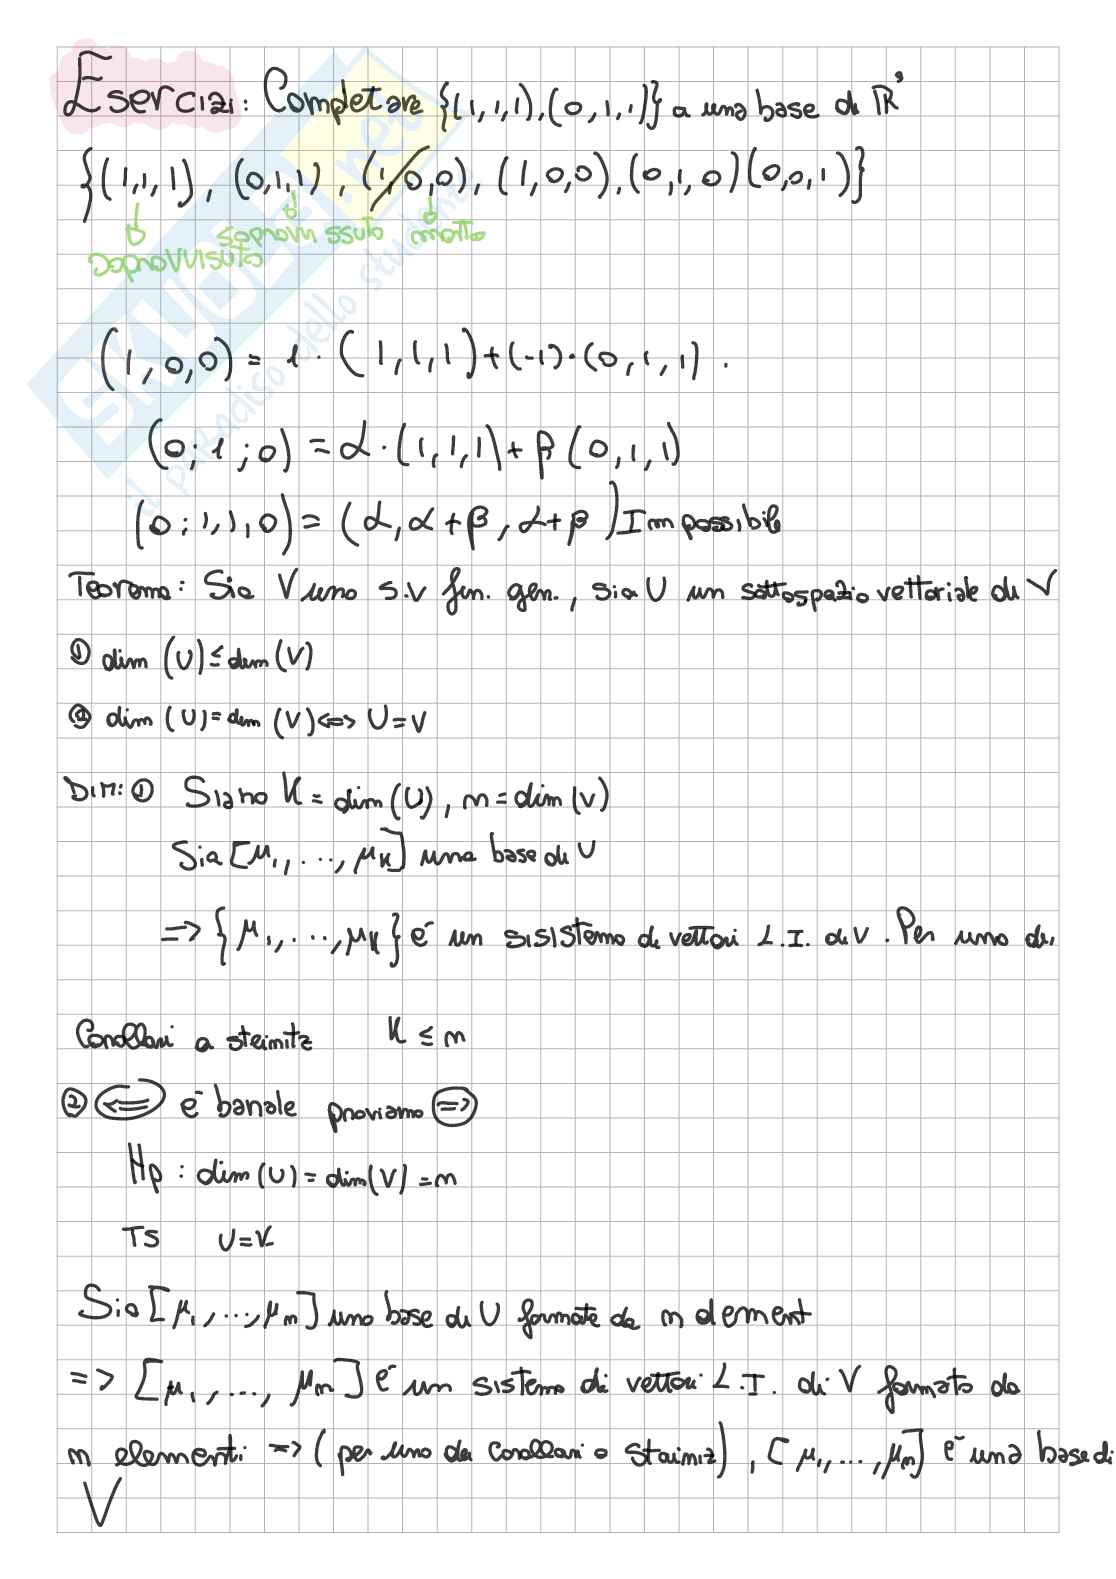 Esercizi: Completare {(1,1,1),(0,1,1)} a una base di R³
{(1,1,1), (0,1,1), (1,0,0), (1,0,0),(0,1,0)(0,0,1)}
sopravvissuto morto
sopravvisuto
(1,0,0) = 1·(1,1,1)+(-1)·(0,1,1).
(0;1;0) = α·(1,1,1)+β(0,1,1)
(0;1,1,0) = (α,α+β,α+β) Impossibile
Teorema: Sia V uno s.v fin. gen., sia U un sottospazio vettoriale di V
① dim (U)≤dim(V)
② dim (U)=dim (V)<=> U=V
DIM: ① Siano K = dim(U), m = dim(V)
Sia [μ₁,...,μₖ] una base di U
=> {μ₁,...,μₖ} è un sisistema di vettori L.I. di V. Per uno di,
Corollari a steinitz K ≤ m
② <= è banale proviamo =>
Hp: dim(U)=dim(V)=m
TS U=V
Sia [μ₁,...,μₘ] una base di U formata da m element
=> [μ₁,...,μₘ] è un sistema di vettori L.I. di V formato da
m elementi => (per uno dei Corollari a Stainiz), [μ₁,...,μₘ] è una base di
V
SKUOLA.net
il paradiso dello studente